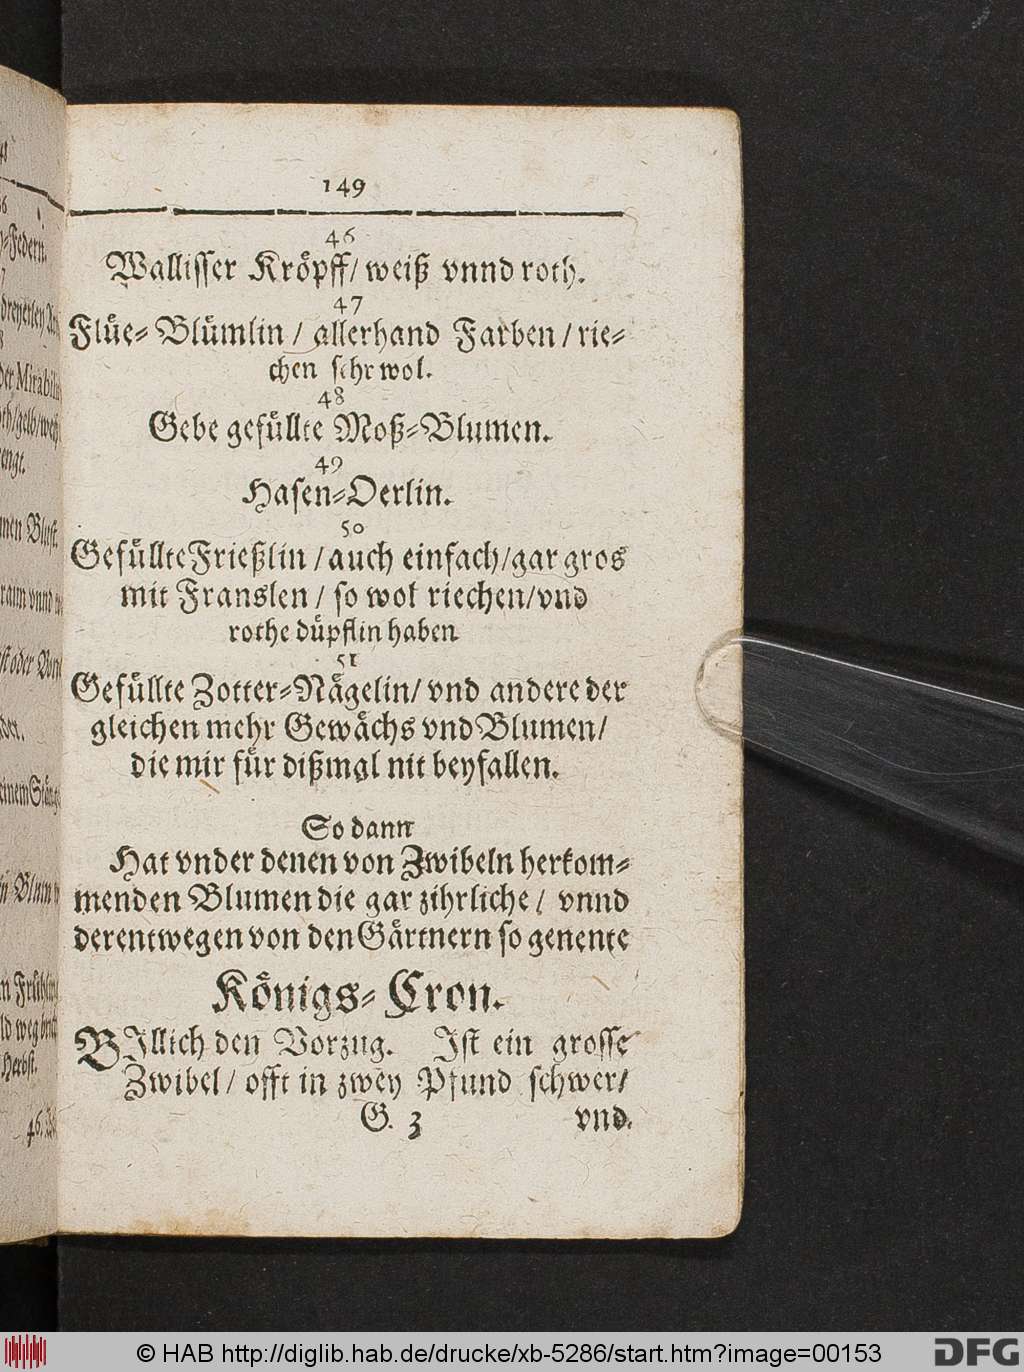 149
46
Wallisser Kröpff/ weiß vnnd roth.
47
Flüe-Blümlin / allerhand Farben / rie-
chen sehr wol.
48
Gebe gefüllte Moß-Blumen.
49
Hasen-Oerlin.
50
Gefüllte Frießlin / auch einfach/ gar gros
mit Franslen / so wol riechen/ vnd
rothe düpflin haben
51
Gefüllte Zotter-Nägelin/ vnd andere der
gleichen mehr Gewächs vnd Blumen/
die mir für dißmal nit beyfallen.
So dann
Hat vnder denen von Zwibeln herkom-
menden Blumen die gar zihrliche / vnnd
derentwegen von den Gärtnern so genente
Königs-Cron.
BIllich den Vorzug. Ist ein grosse
Zwibel / offt in zwey Pfund schwer/
G. 3 vnd.
© HAB http://diglib.hab.de/drucke/xb-5286/start.htm?image=00153
DFG